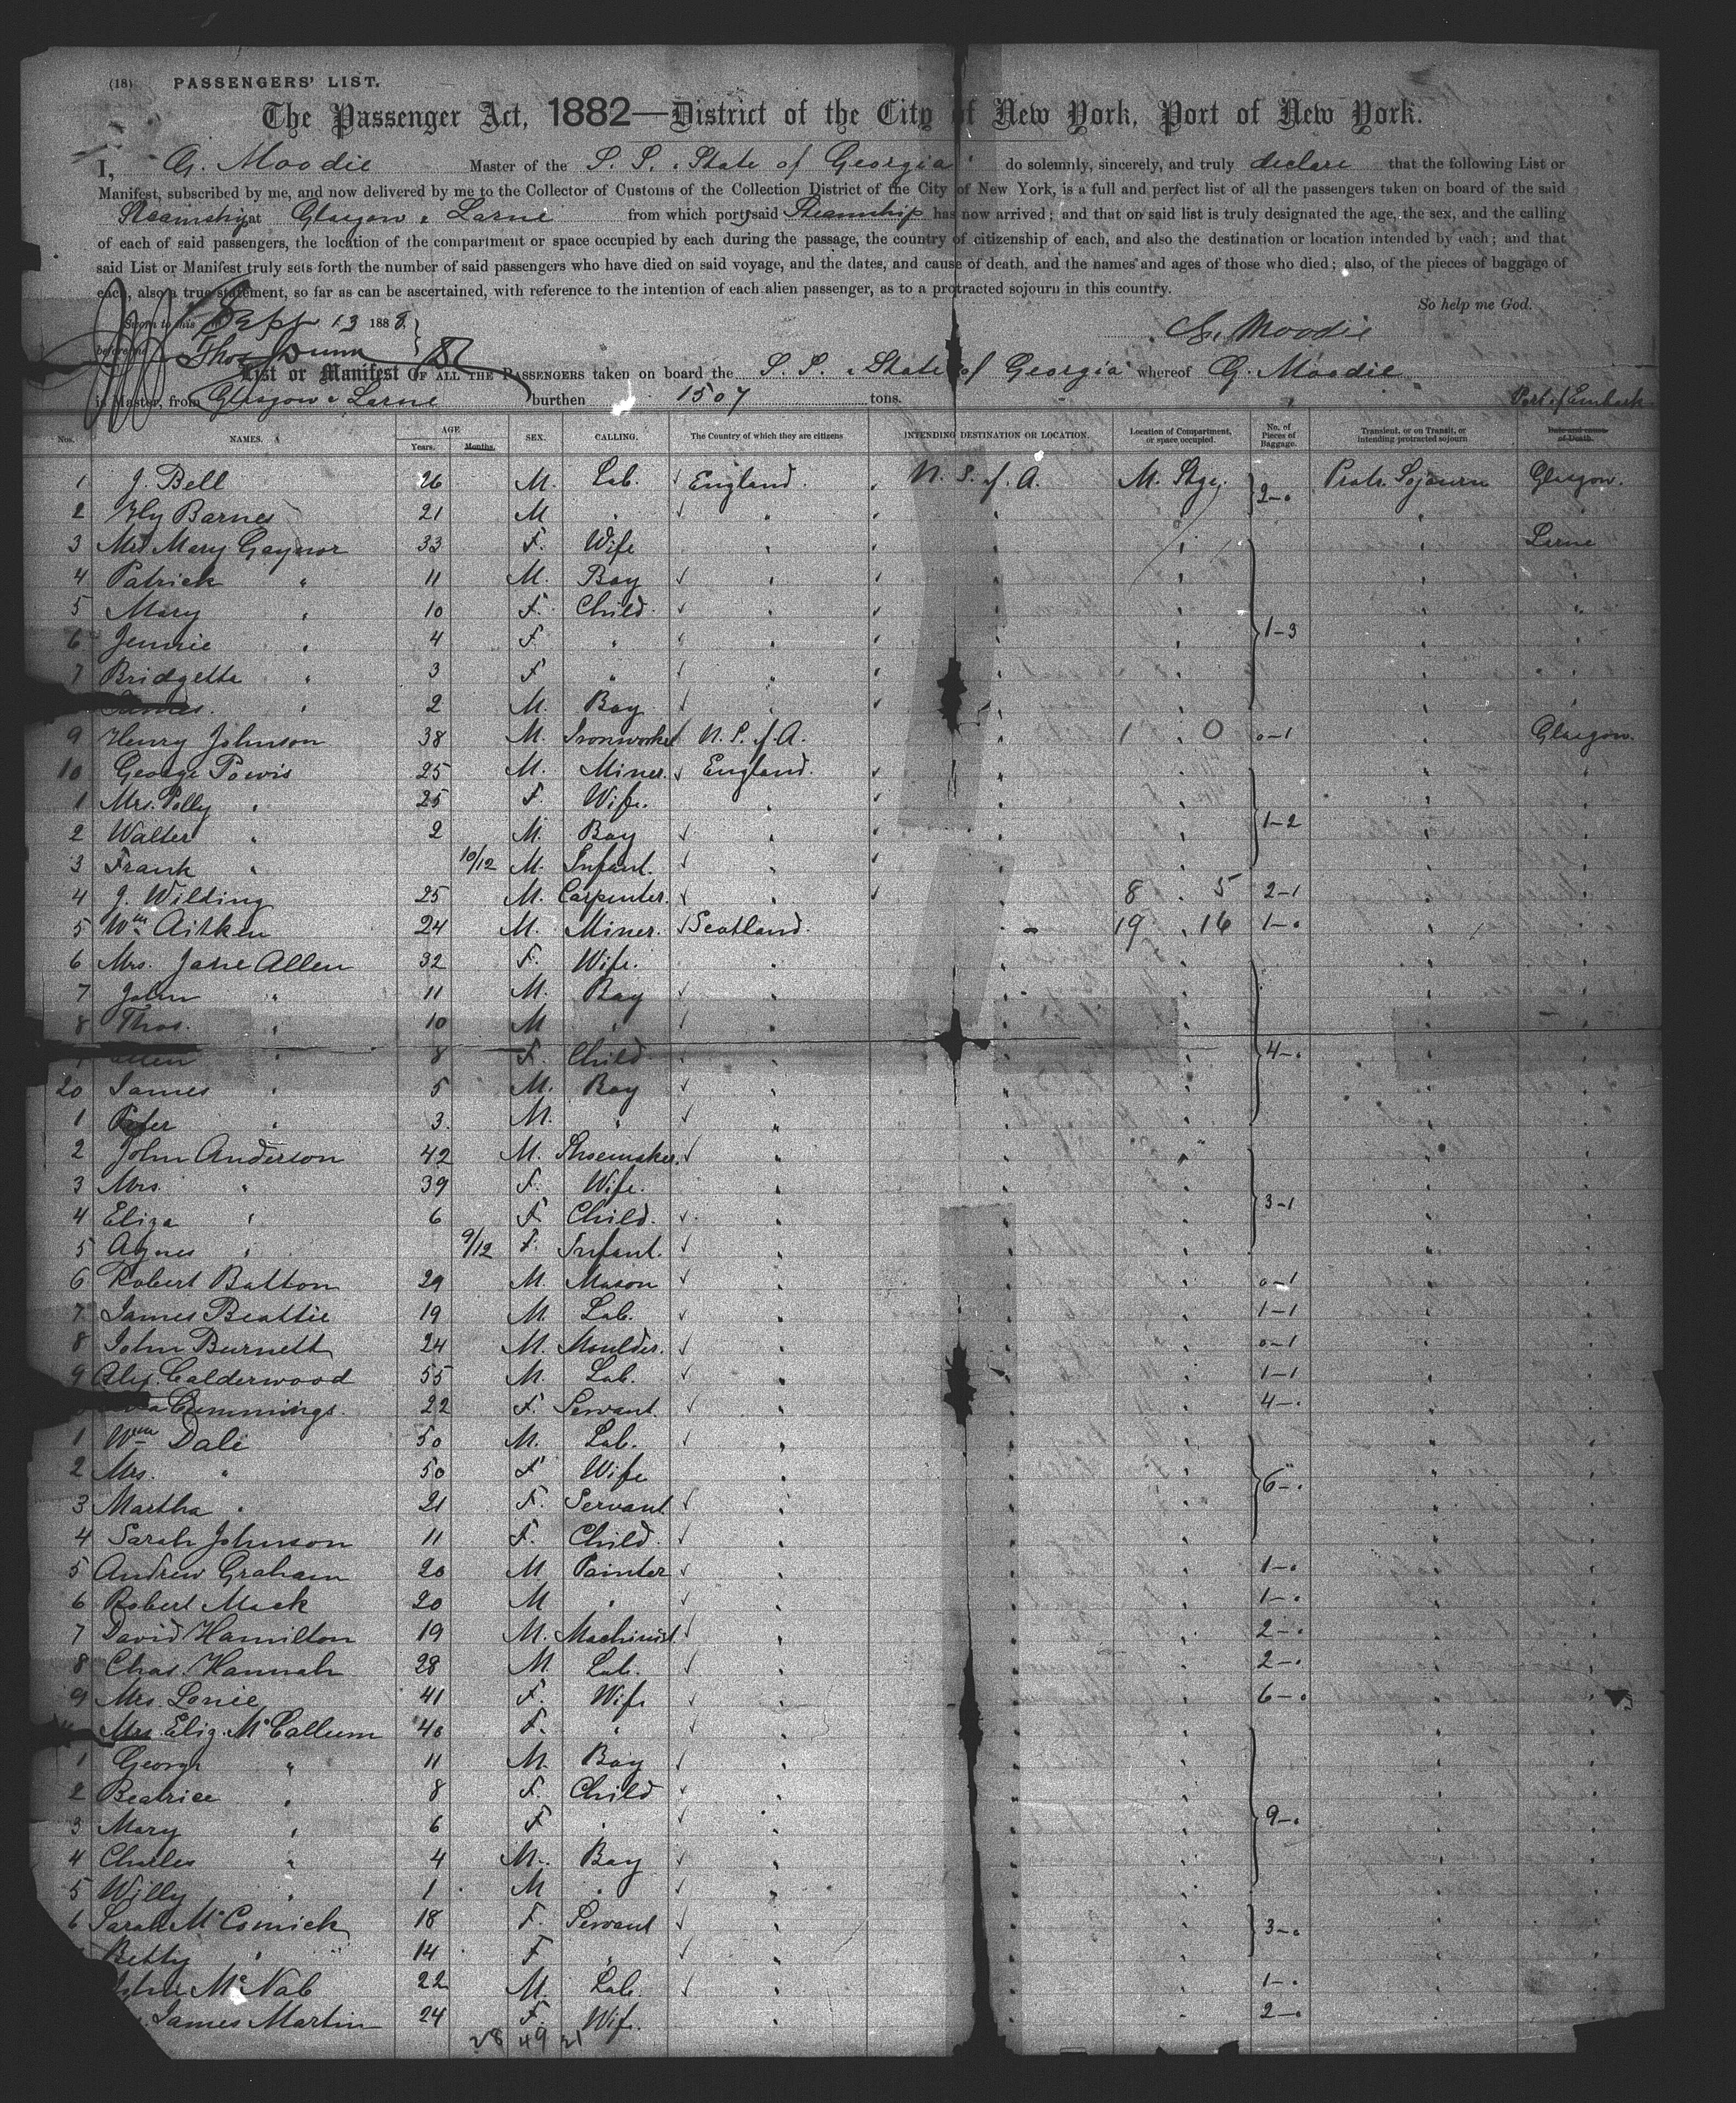 (18) PASSENGERS' LIST.
The Passenger Act, 1882—District of the City of New York, Port of New York.
I, G. Moodie Master of the S. S. "State of Georgia" do solemnly, sincerely, and truly declare that the following List or
Manifest, subscribed by me, and now delivered by me to the Collector of Customs of the Collection District of the City of New York, is a full and perfect list of all the passengers taken on board of the said
Steamship at Glasgow & Larne from which port said Steamship has now arrived; and that on said list is truly designated the age, the sex, and the calling
of each of said passengers, the location of the compartment or space occupied by each during the passage, the country of citizenship of each, and also the destination or location intended by each; and that
said List or Manifest truly sets forth the number of said passengers who have died on said voyage, and the dates, and cause of death, and the names and ages of those who died; also, of the pieces of baggage of
each, also a true statement, so far as can be ascertained, with reference to the intention of each alien passenger, as to a protracted sojourn in this country.
So help me God.
Sworn to this Sept 13 1888
G. Moodie
before me Thos Dunn
List or Manifest OF ALL THE PASSENGERS taken on board the S. S. "State of Georgia" whereof G. Moodie
is Master, from Glasgow & Larne burthen 1507 tons. Port of Embark
Nos. NAMES. AGE Years. Months. SEX. CALLING. The Country of which they are citizens INTENDING DESTINATION OR LOCATION. Location of Compartment, or space occupied. No. of Pieces of Baggage. Transient, or on Transit, or intending protracted sojourn Date and cause of Death.
1 J. Bell 26 M. Lab. England. U. S. of A. M. Stge. 2-0 Protr. Sojourn Glasgow.
2 Hy Barnes 21 M " " " " " "
3 Mrs Mary Gaynor 33 F. Wife " " " " Larne
4 Patrick " 11 M. Boy " " " " "
5 Mary " 10 F. Child " " " " "
6 Jennie " 4 F. " " " " 1-3 " "
7 Bridgetta " 3 F " " " " " "
James. " 2 M. Boy " " " "
9 Henry Johnson 38 M. Ironworker U. S. of A. " 1 0 0-1 " Glasgow.
10 George Powis 25 M. Miner. England. " " " "
1 Mrs. Polly " 25 F. Wife. " " " " "
2 Walter " 2 M. Boy " " " 1-2 " "
3 Frank " 10/12 M. Infant. " " " " "
4 J. Wilding 25 M. Carpenter. " " 8 5 2-1 " "
5 Wm Aitken 24 M. Miner. Scotland. " 19 16 1-0 " "
6 Mrs. Jane Allen 32 F. Wife. " " " " "
7 John " 11 M. Boy " " " " "
8 Thos. " 10 M " " " " " "
Ellen " 8 F. Child " " " 4-0 " "
20 James " 5 M. Boy " " " " "
1 Peter " 3. M. " " " " " "
2 John Anderson 42 M. Shoemaker. " " " " "
3 Mrs. " 39 F. Wife. " " " " "
4 Eliza " 6 F Child. " " " 3-1 " "
5 Agnes " 9/12 F. Infant. " " " " "
6 Robert Batton 29 M. Mason " " " 0-1 " "
7 James Beattie 19 M. Lab. " " " 1-1 " "
8 John Burnett 24 M. Moulder. " " " 0-1 " "
9 Alex Calderwood 55 M. Lab. " " " 1-1 " "
Cummings. 22 F. Servant. " " " 4-0 " "
1 Wm Dale 50 M. Lab. " " " " "
2 Mrs. " 50 F Wife " " " 6-0 " "
3 Martha " 21 F. Servant " " " " "
4 Sarah Johnson 11 F. Child " " " " "
5 Andrew Graham 20 M Painter " " " 1-0 " "
6 Robert Mack 20 M " " " " 1-0 " "
7 David Hamilton 19 M. Machinist " " " 2-0 " "
8 Chas. Hannah 28 M. Lab. " " " 2-0 " "
9 Mrs. Lonie 41 F. Wife " " " 6-0 " "
Mrs. Eliz. McCallum 40 F. " " " " " "
1 George " 11 M. Boy " " " " "
2 Beatrice " 8 F. Child " " " " "
3 Mary " 6 F " " " " 9-0 " "
4 Charles " 4 M. Boy " " " " "
5 Willy " 1 M " " " " " "
6 Sarah McComick 18 F. Servant " " " 3-0 " "
Betty " 14 F " " " " " "
McNab 22 M. Lab. " " " 1-0 " "
James Martin 24 F. Wife. " " " 2-0 " "
28 49 21